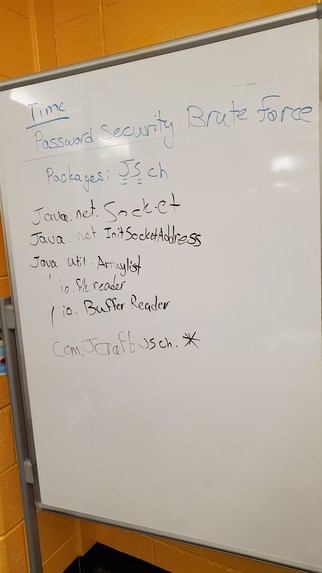 Time
Password Security Brute force
Packages: JSch
Java.net.Socket
Java.net InitSocketAddress
Java.util.Arraylist
/ io.file reader
/ io.Buffer Reader
Com.Jcraft.jsch.*